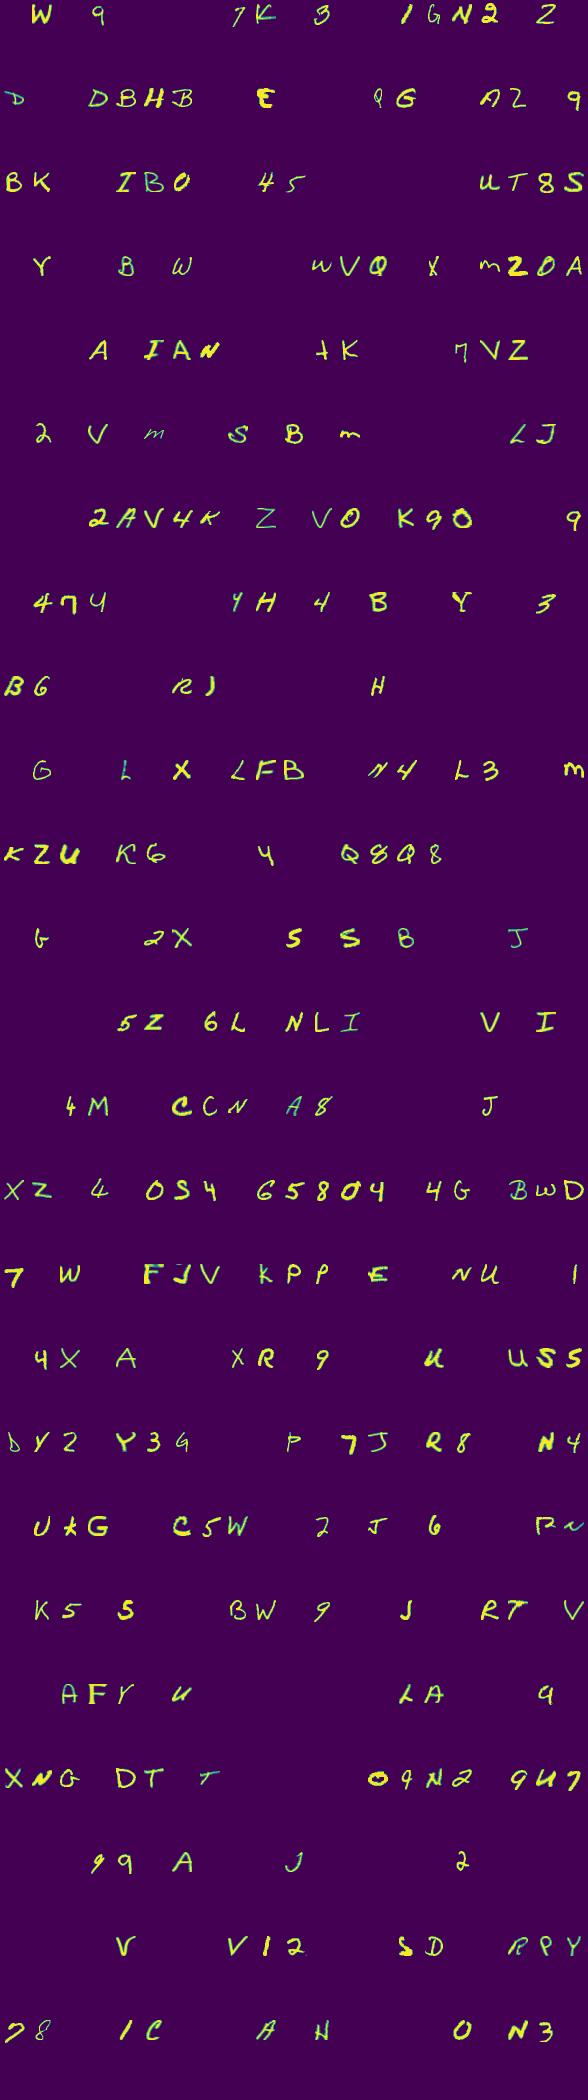 W 9 7K 3 1GN2 Z
D DBHB E QG AZ 9
BK IB0 45 UT8S
Y B W WVQ X MZ0A
A IAN 1K 7VZ
2 V M S B M LJ
2AV4K Z VO K90 9
474 9H 4 B Y 3
B6 RJ H
G L X LFB N4 L3 M
KZU K6 4 Q8Q8
G 2X S S B J
5Z 6L NLI V I
4M CCN A8 J
XZ 4 0S4 65804 4G BWD
7 W FJV KPP E NU 1
4X A XR 9 U US5
DYZ Y39 P 7J R8 N4
U*G C5W 2 J 6 RN
K5 S BW 9 J RT V
AFY U LA 9
XNG DT T 09N2 9U7
99 A J 2
V V12 SD RPY
78 1C A H O N3